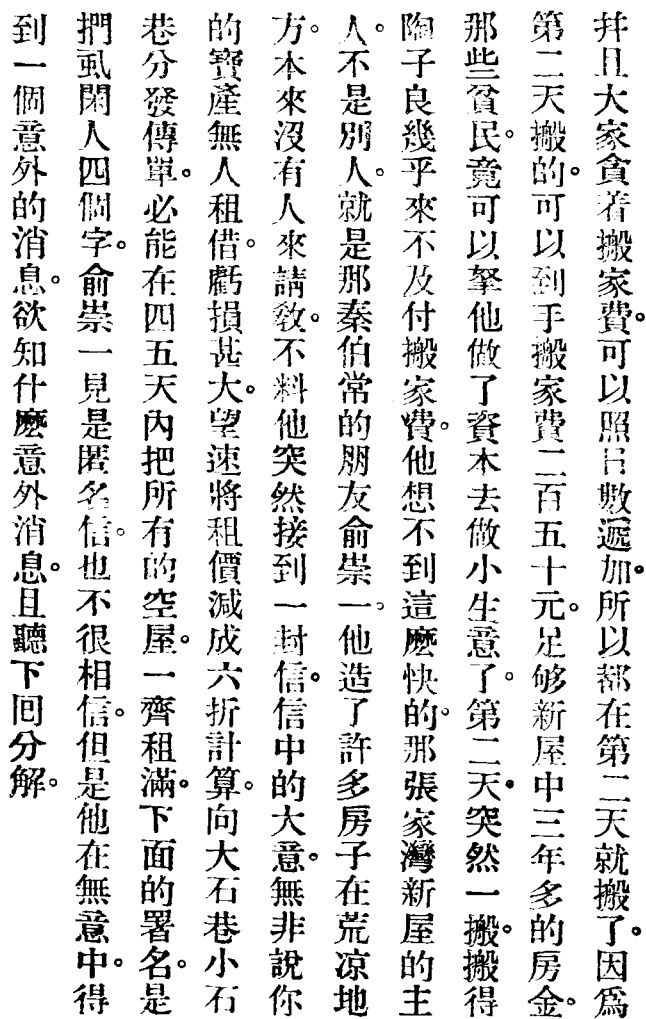 幷且大家貪着搬家費。可以照日數遞加。所以都在第二天就搬了。因爲
第二天搬的。可以到手搬家費二百五十元。足够新屋中三年多的房金。
那些貧民。竟可以拏他做了資本去做小生意了。第二天突然一搬。搬得
陶子良幾乎來不及付搬家費。他想不到這麽快的。那張家灣新屋的主
人。不是別人。就是那秦伯常的朋友俞崇一。他造了許多房子在荒凉地
方。本來沒有人來請敎。不料他突然接到一封信。信中的大意。無非說你
的寶產無人租借。虧損甚大。望速將租價減成六折計算。向大石巷小石
巷分發傳單。必能在四五天內把所有的空屋。一齊租滿。下面的署名。是
捫虱閑人四個字。俞崇一見是匿名信。也不很相信。但是他在無意中。得
到一個意外的消息。欲知什麽意外消息。且聽下囘分解。